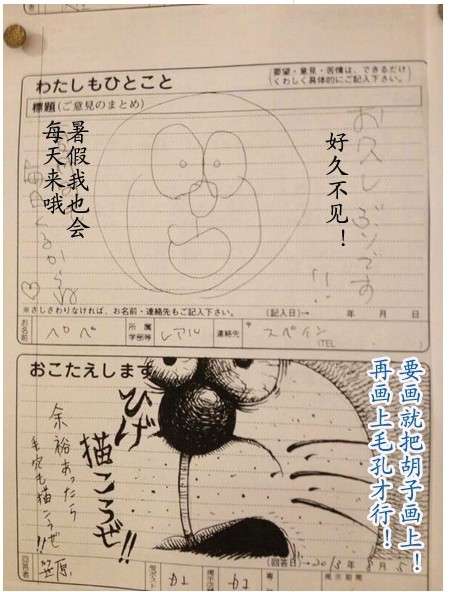 わたしもひとこと
要望・意見・苦情は、できるだけ
くわしく具体的にご記入下さい。
標題(ご意見のまとめ)
お久しぶりです!!
好久不见!
暑假我也会
每天来哦
※さしさわりなければ、お名前・連絡先もご記入下さい。
(記入日)→ 年 月 日
お名前 ペペ 所属 学部等 レアル 連絡先 スペイン
(TEL
おこたえします
ひげ
描こうぜ!!
余裕あったら
毛穴も描こうぜ!!
要画就把胡子画上!
再画上毛孔才行!
(回答日)→2013年8月5日
回答者 笠原